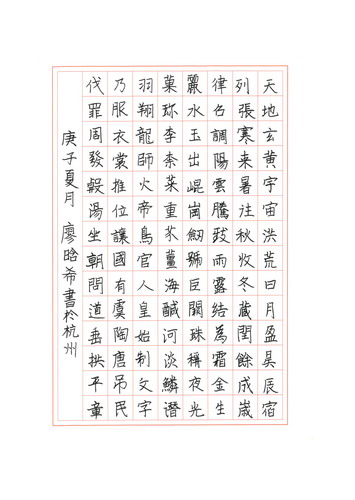 天地玄黄宇宙洪荒日月盈昃辰宿
列張寒来暑往秋收冬藏閏餘成歲
律吕調陽雲騰致雨露结為霜金生
麗水玉出崐崗劔號巨闕珠稱夜光
菓珍李柰菜重芥薑海醎河淡鱗潛
羽翔龍師火帝鳥官人皇始制文字
乃服衣裳推位讓國有虞陶唐吊民
伐罪周發殷湯坐朝問道垂拱平章
庚子夏月 廖晗希書於杭州